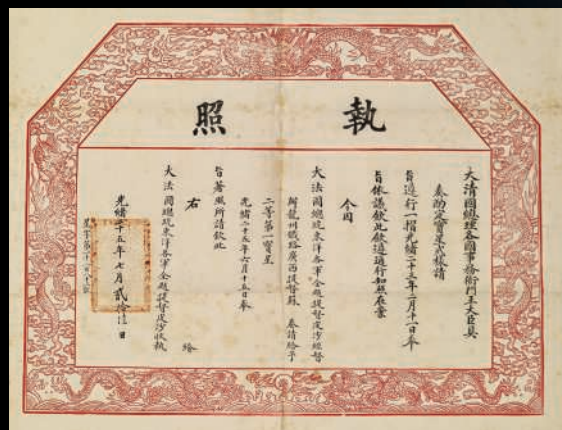 執照
大清國總理各國事務衙門王大臣具
奏酌定寶星式樣請
旨遵行一摺光緒二十三年二月十一日奉
旨依議欽此欽遵通行知照在案
今因
大法國總統東洋各軍全題提督度沙經督
辦龍州鐵路廣西提督蘇 奏請給予
二等第一寶星
光緒二十五年六月十五日奉
旨著照所請欽此
右 給
大法國總統東洋各軍全題提督度沙收執
光緒二十五年七月貳拾 日